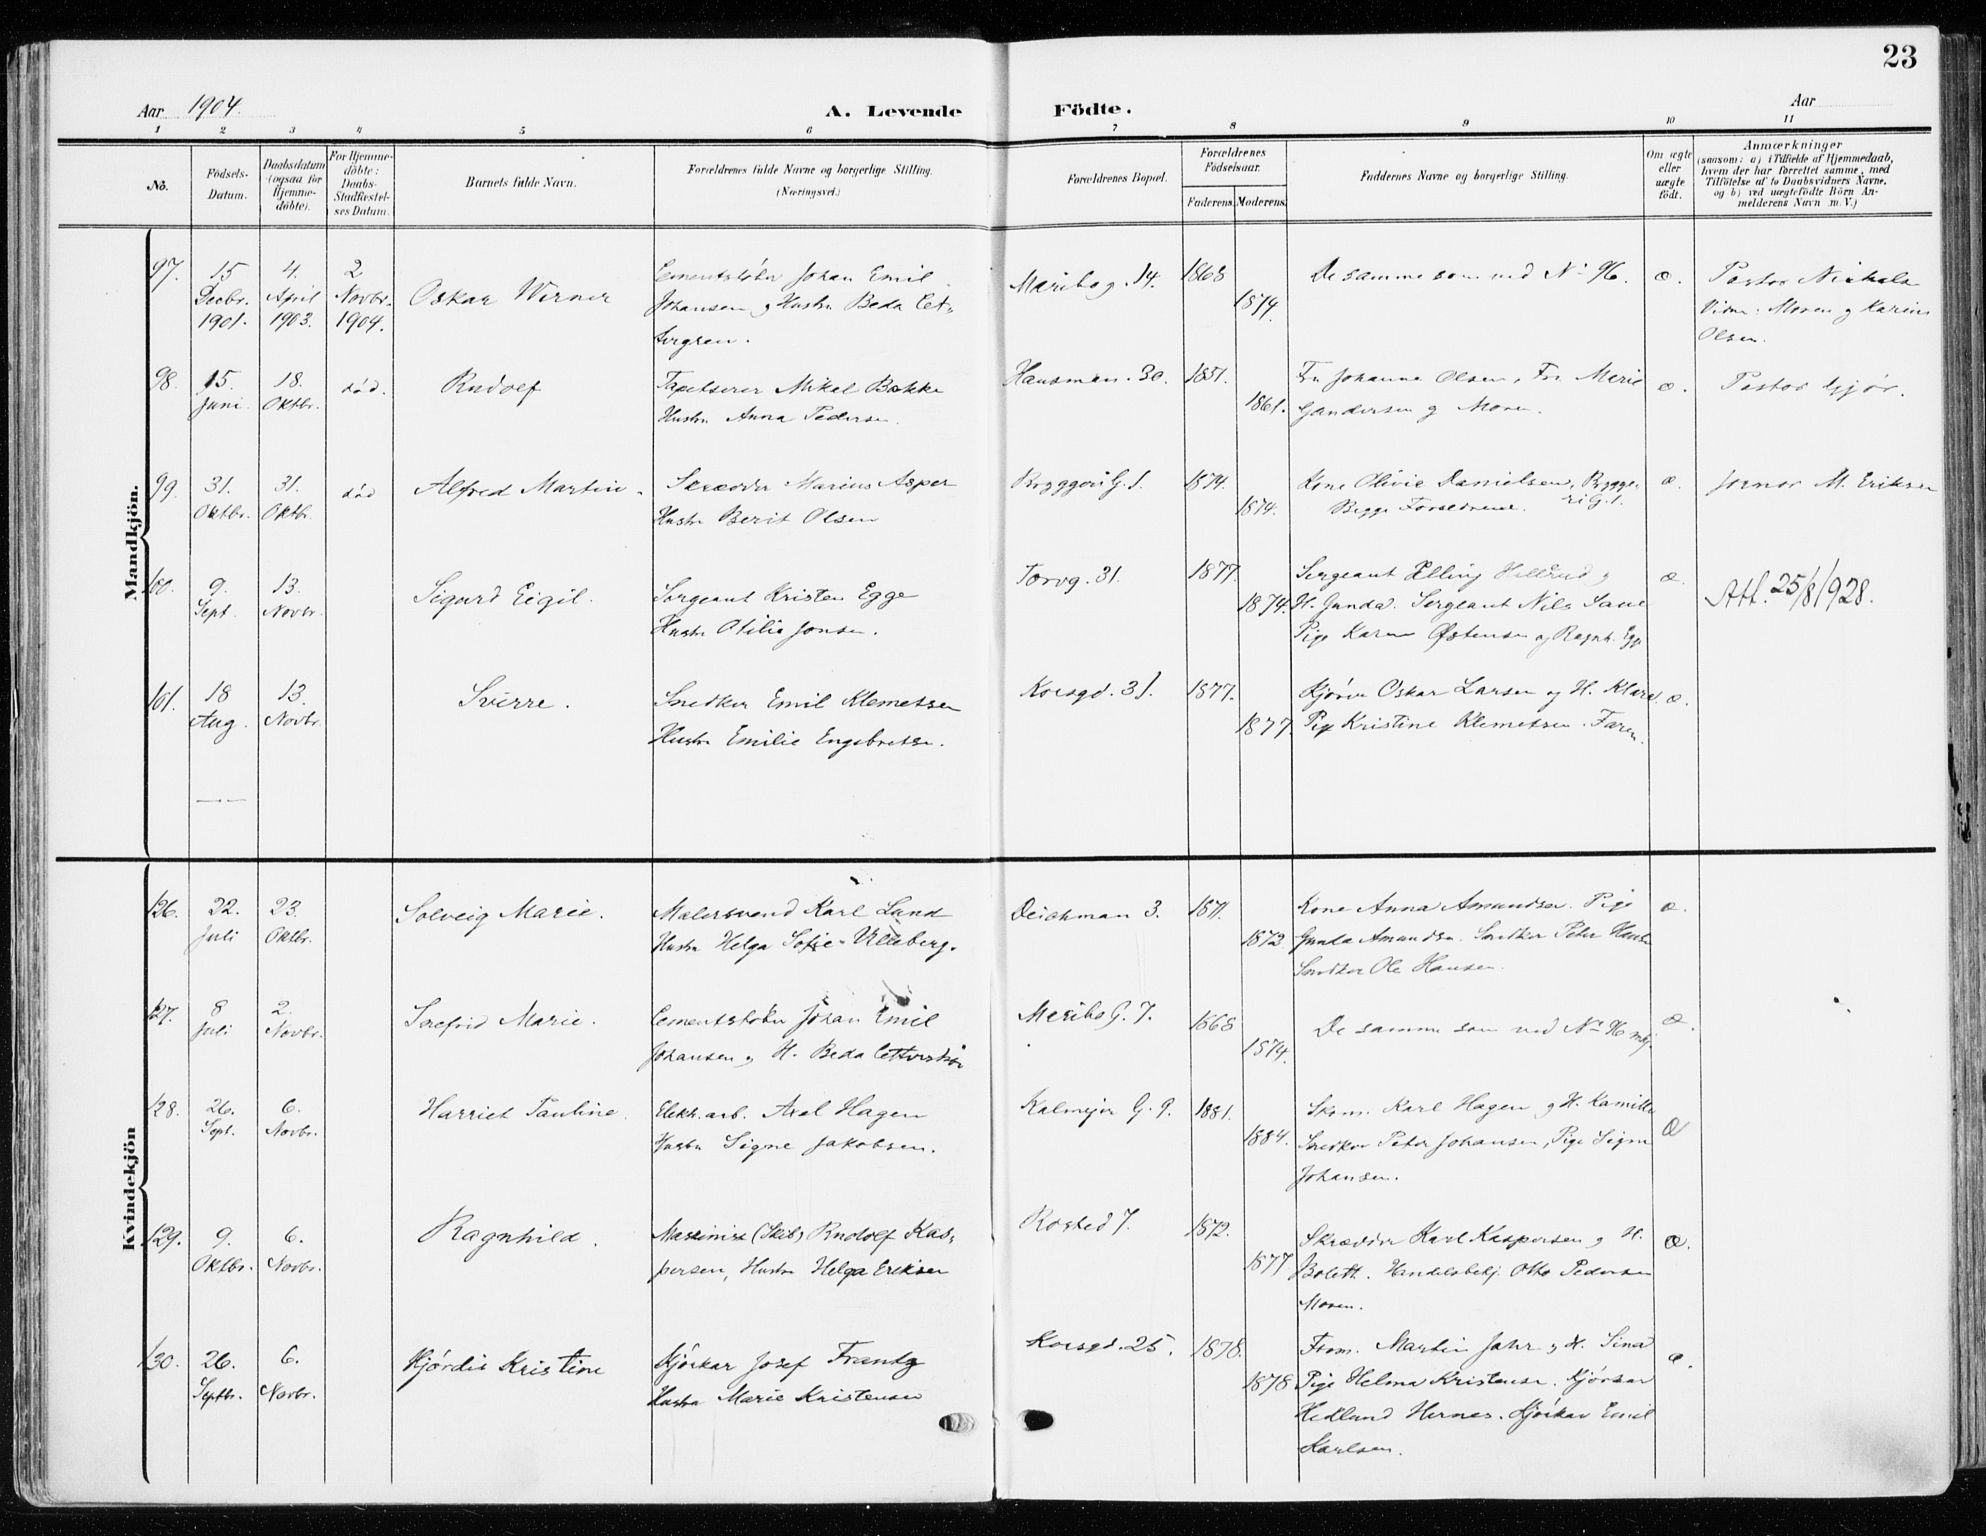 23
Aar 1904.
A. Levende Födte.
Aar
1 2 3 4 5 6 7 8 9 10 11
No.
Födsels-Datum.
Daabsdatum (ogsaa for Hjemme-döbte).
For Hjemme-döbte: Daabs-Stadfæstel-ses Datum.
Barnets fulde Navn.
Forældrenes fulde Navne og borgerlige Stilling.
(Næringsvei.)
Forældrenes Bopæl.
Forældrenes Födselsaar.
Faderens. Moderens.
Faddernes Navne og borgerlige Stilling.
Om ægte eller uægte födt.
Anmærkninger
(saasom: a) i Tilfælde af Hjemmedaab, hvem der har forrettet samme, med Tilföielse af to Daabsvidners Navne, og b) ved uægtefödte Börn An-melderens Navn m. V.)
Mandkjön.
97. 15 Decbr. 1901. 4. April 1903. 2 Novbr. 1904. Oskar Werner
Cementstøber Johan Emil
Johansen og Hustru Beda
Maribog. 14. 1868 1874.
De samme som ved No 96. æ.
Pastor
Vidne: Moren og Karine
Olsen.
98. 15. Juni. 18. Oktbr. død. Rudolf
Tapetserer Mikal Bakke
Hustru Anna Pedersen.
Hausman. 30. 1851. 1861.
Fru Johanne Olsen, Fru Marie
Gundersen og Moren. æ.
Pastor Gjør.
99. 31. Oktbr. 31. Oktbr. død Alfred Martin.
Skrædder Marius Asper
Hustru Berit Olsen
Bryggeri G. 1. 1874. 1874.
Kone Olivie Danielsen, Brygge-
ri G. 1.
Begge Forældrene. æ.
Jormor M. Eriksen
100. 9. Sept. 13. Novbr. Sigurd Eigil.
Sergeant Kristen Egge
Hustru Otilie Jonsen.
Torvg. 31. 1877. 1874.
Sergeant Elling og
H. Gunda. Sergeant Nils
Pige Karen Østensen og Ragnh. Egge æ.
Att. 25/8 1928.
101. 18 Aug. 13. Novbr. Sverre.
Snedker Emil Klemetsen
Hustru Emilie Engebretsen.
Korsgd. 31. 1877. 1877.
Kjører Oskar Larsen og H. Klara
Pige Kristine Klemetsen. Faren. æ.
Kvindekjön
126. 22. Juli 23. Oktbr. Solveig Marie.
Malersvend Karl Lund
Hustru Helga Sofie Ulleberg.
Deichman 3. 1871. 1872
Kone Anna Amundsen. Pige
Gunda Amundsen. Snedker Peter Hansen
Snedker Ole Hansen. æ.
127. 8 Juli 2. Novbr. Snefrid Marie.
Cementstøber Johan Emil
Johansen og H. Beda
Maribo G. 7. 1868 1874.
De samme som ved No æ.
128. 26. Sept. 6. Novbr. Harriet Pauline.
Elektr. arb. Axel Hagen
Hustru Signe Jakobsen.
Kalmeyer G. 9. 1881. 1884.
Skom. Karl Hagen og H. Kamilla
Snedker Peter Johansen, Pige Signe
Johansen. æ
129. 9. Oktbr. 6. Novbr. Ragnhild.
Maskinist (Skib) Rudolf Kas-
persen, Hustru Helga Eriksen
Rosted 7. 1872. 1877
Skrædder Karl Kaspersen og H.
Bolett. Handelsbetj. Otto Pedersen
Moren. æ.
130. 26. Septbr. 6. Novbr. Hjørdis Kristine
Kjørkar Josef Frantz
Hustru Marie Kristensen
Korsgd. 25. 1878. 1878
Form. Martin Jahr og H. Sina
Pige Helma Kristensen. Kjørkar
Hedlund Hernes. Kjørkar Emil
Karlsen. æ.